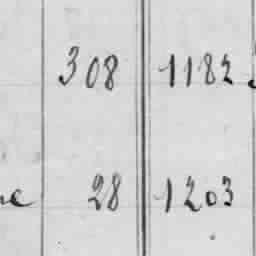 308 1182
28 1203